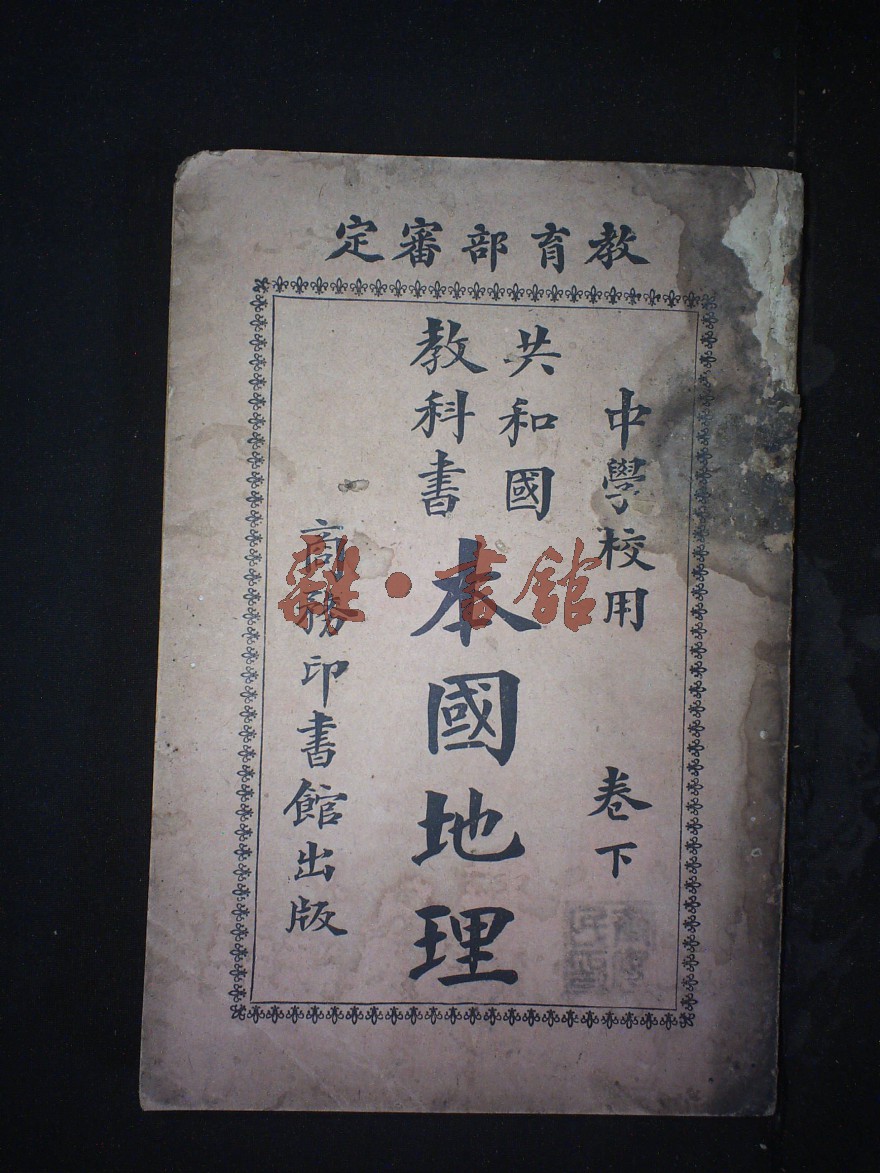 教育部審定
中學校用 卷下
共和國
教科書
本國地理
商務印書館出版
·書館